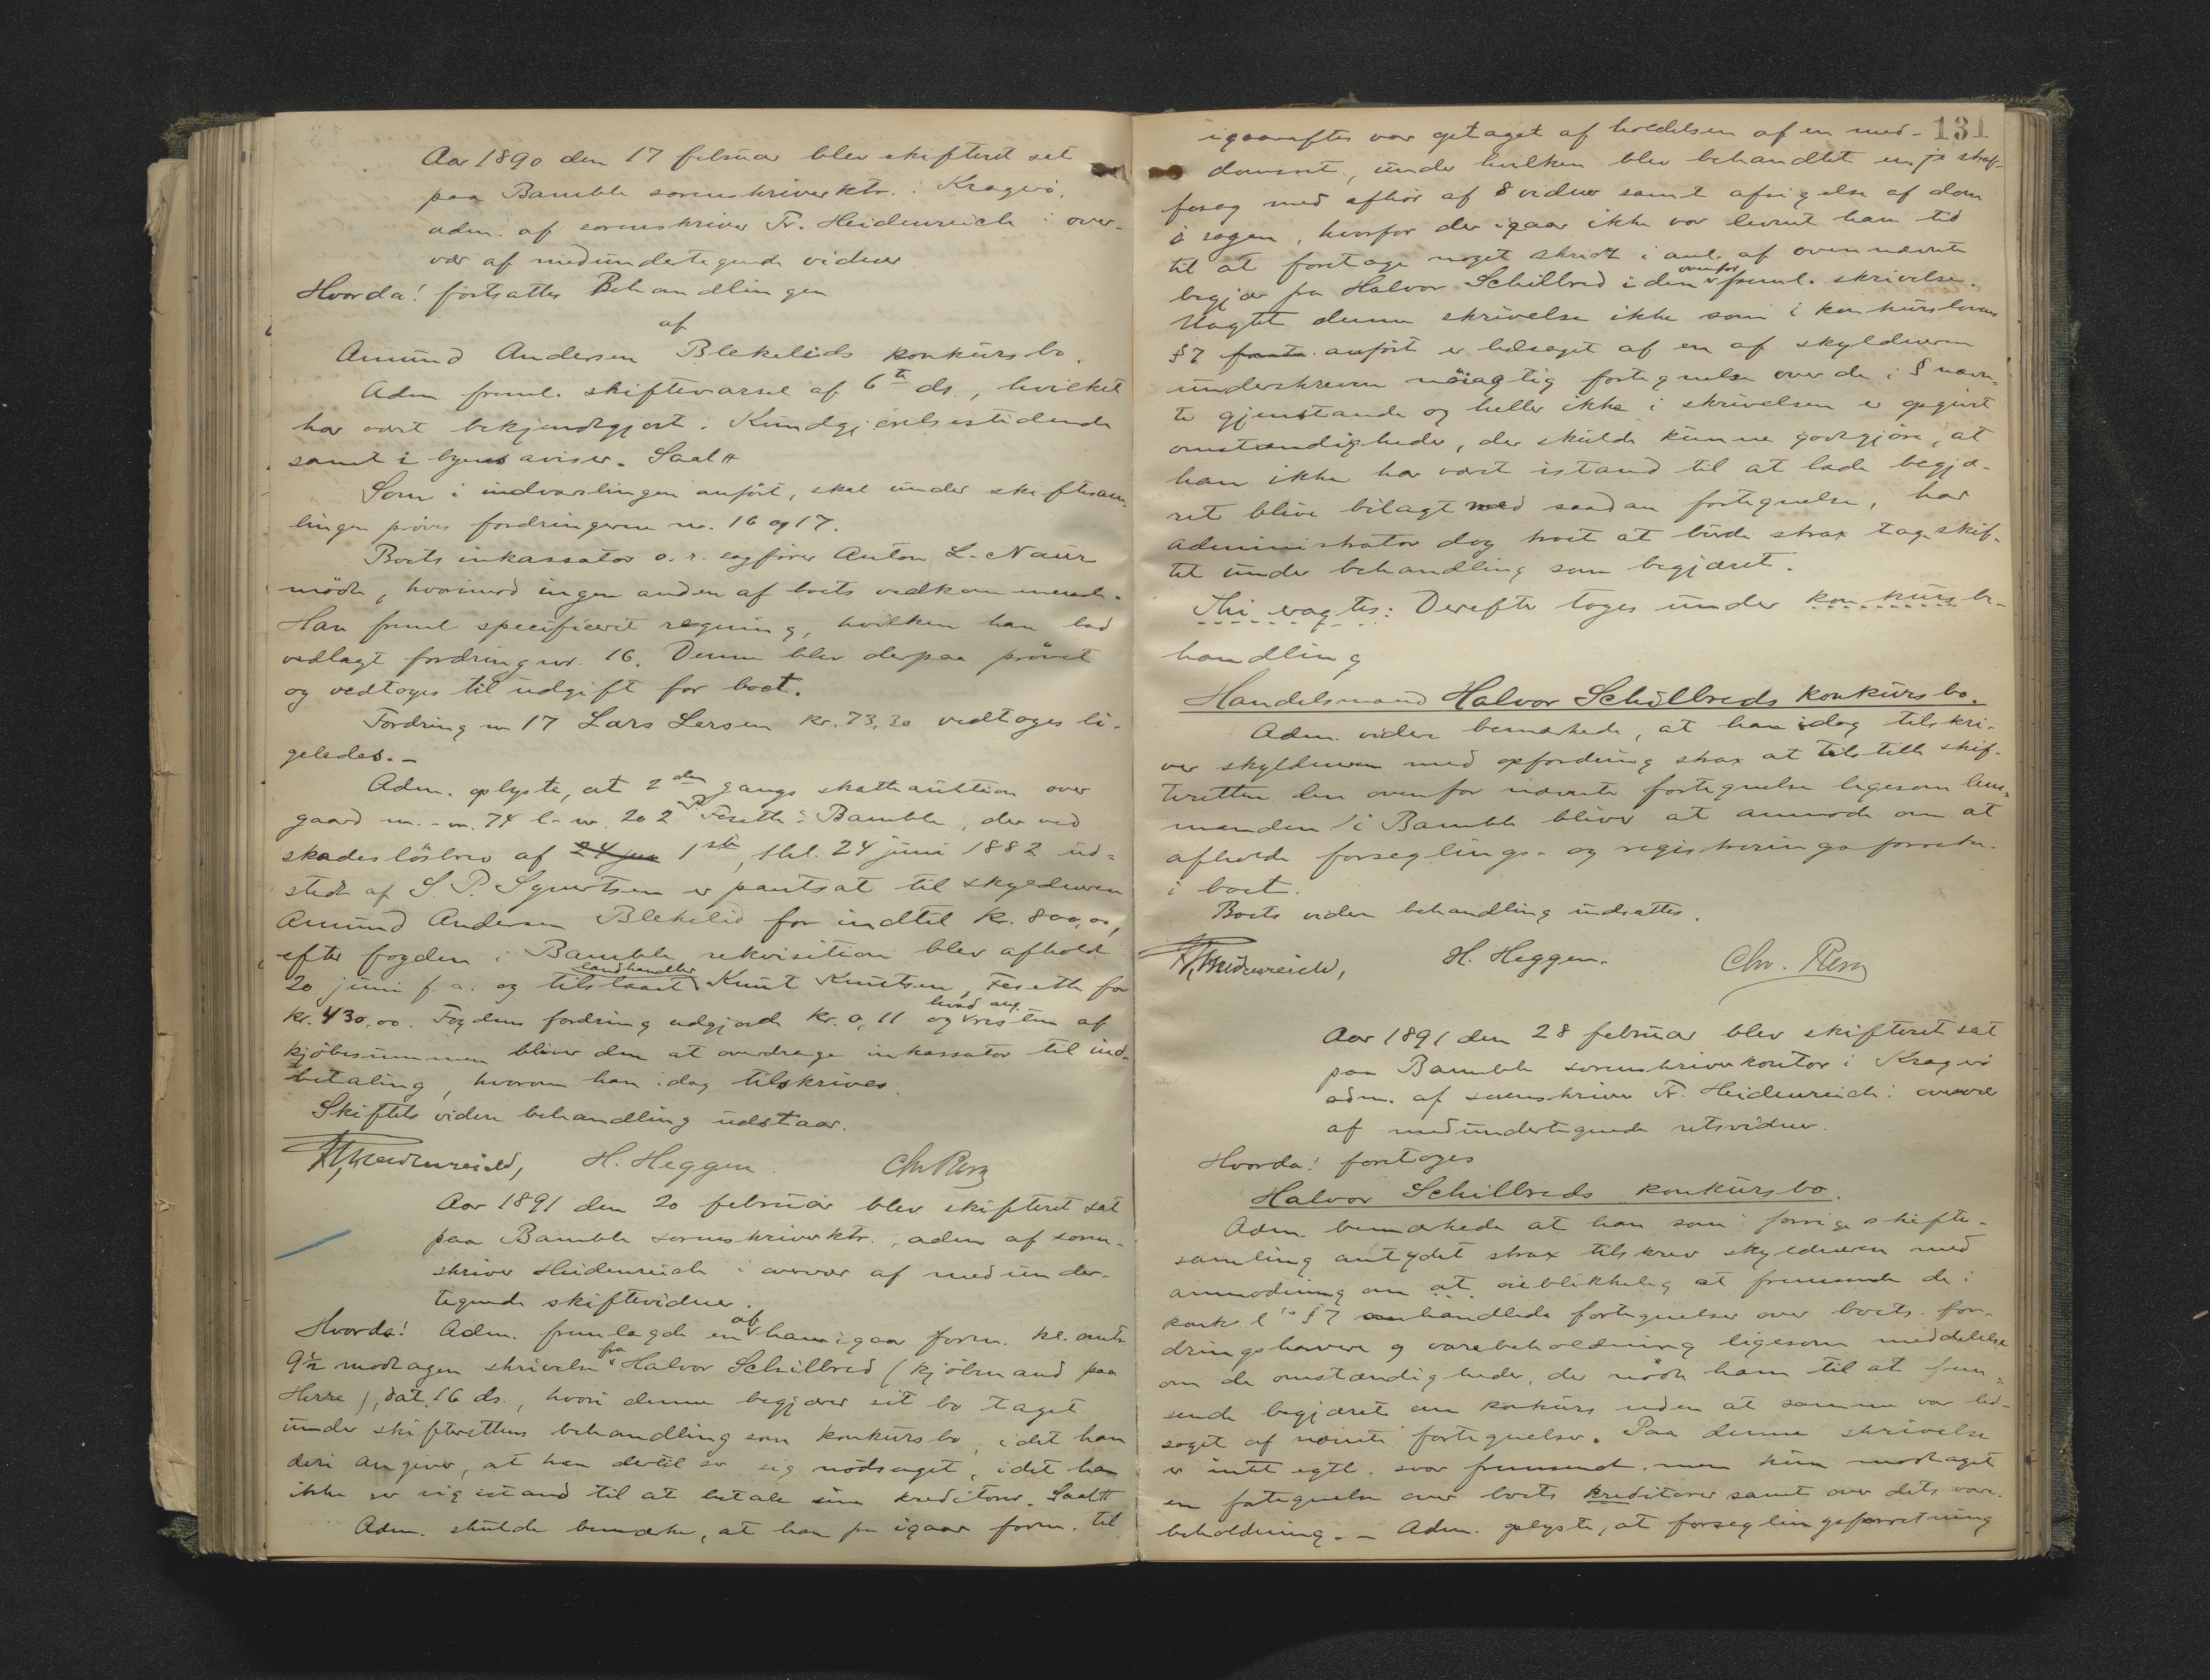 Aar 1890 den 17 februar blev skifteret sat
paa Bamble sorenskriverktr. i Kragerö,
adm. af sorenskriver Fr. Heidenreich i over-
vær af medundertegnede vidner.
Hvorda! fortsattes Behandlingen
af
Amund Andersen Blekelids konkursbo.
Adm freml. skiftevarsel af 6te ds., hvilket
har været bekjendtgjort i Kundgjørelsestidende
samt i byens aviser. Saal#
Som i indvarslingen anfört, skal under skiftesam-
lingen pröves fordringerne nr. 16 og 17.
Boets inkassator o. r. sagförer Anton L. Naur
mödte, hvorimod ingen anden af boets vedkommende.
Han freml specificeret regning, hvilken han lod
vedlagt fordring nr. 16. Denne blev derpaa prövet
og vedtoges til udgift for boet.
Fordring nr 17 Lars Larsen kr. 73,30 vedtoges li-
geledes. -
Adm. oplyste, at 2den gangs skatteauktion over
gaard m.-nr. 74 l-nr. 202 Feseth i Bamble, der ved
skadeslösbrev af 24 jun 1ste, thl. 24 juni 1882 ud-
stedt af S. P. Syvertsen er pantsat til skyldneren
Amund Andersen Blekelid for indtil kr. 800,00,
efter fogden i Bamble rekvisition blev afholdt
20 juni f. a. og tilslaaet landhandler Knut Knutsen, Feseth for
kr. 430,00. Fogdens fordring udgjorde kr. 0,11 og hvad ang. resten af
kjöbesummen bliver den at overdrage inkassator til ind-
betaling, hvorom han idag tilskrives.
Skiftets videre behandling udstaar.
Fr. Heidenreich, H. Heggen. Chr
Aar 1891 den 20 februar blev skifteret sat
paa Bamble sorenskriverktr., adm af soren-
skriver Heidenreich i overvær af medunder-
tegnede skiftevidner.
Hvorda! Adm. fremlagde en af ham igaar form. kl. omtr.
9½ modtagen skrivelse fra Halvor Schilbred (kjöbmand paa
Herre), dat. 16 ds., hvori denne begjærer sit bo taget
under skifterettens behandling som konkursbo, idet han
deri angiver, at han dertil ser sig nödsaget, idet han
ikke ser sig istand til at betale sine kreditorer. Saal#
Adm. skulde bemærke, at han fra igaar form. til
131
igaaraftes var optaget af holdelsen af en med-
domsret, under hvilken blev behandlet en straf-
fesag med afhör af 8 vidner samt afsigelse af dom
i sagen, hvorfor der igaar ikke var levnet ham tid
til at foretage noget skridt i anl. af ovennævnte
begjær fra Halvor Schilbred i den ovenfor freml. skrivelse.
Uagtet denne skrivelse ikke som i konkurslovens
§ 7 anfört er ledsaget af en af skyldneren
underskreven nöiagtig fortegnelse over de i § nævn-
te gjenstande og heller ikke i skrivelsen er opgivet
omstændigheder, der skulde kunne godtgjöre, at
han ikke har været istand til at lade begjæ-
ret blive bilagt med saadan fortegnelse, har
administrator dog troet at burde strax tage skif-
tet under behandling som begjæret.
Thi vagtes: Derefter toges under konkursbe-
handling
Handelsmand Halvor Schilbreds konkursbo.
Adm. videre bemærkede, at han idag tilskri-
ver skyldneren med opfordring strax at tilstille skif-
teretten den ovenfor nævnte fortegnelse ligesom lens-
manden i Bamble bliver at anmode om at
afholde forseglings- og registreringsforretn.
i boet.
Boets videre behandling udsattes.
Fr. Heidenreich, H. Heggen. Chr.
Aar 1891 den 28 februar blev skifteret sat
paa Bamble sorenskriverkontor i Kragerö
adm. af sorenskriver Fr. Heidenreich i overvær
af medundertegnede retsvidner.
Hvorda! foretoges
Halvor Schilbreds konkursbo.
Adm. bemærkede at han som i forrige skifte-
samling antydet strax tilskrev skyldneren med
anmodning om at oieblikkelig at fremsende de i
konk.l. § 7 omhandlede fortegnelser over boets for-
dringshavere og varebeholdning ligesom meddelelse
om de omstændigheder, der nödte ham til at frem-
sende begjæret om konkurs uden at samme var led-
saget af nævnte fortegnelser. Paa denne skrivelse
er intet egtl. svar fremsendt, men kun modtaget
en fortegnelse over boets kreditorer samt over dets vare-
beholdning. - Adm. oplyste, at forseglingsforretning